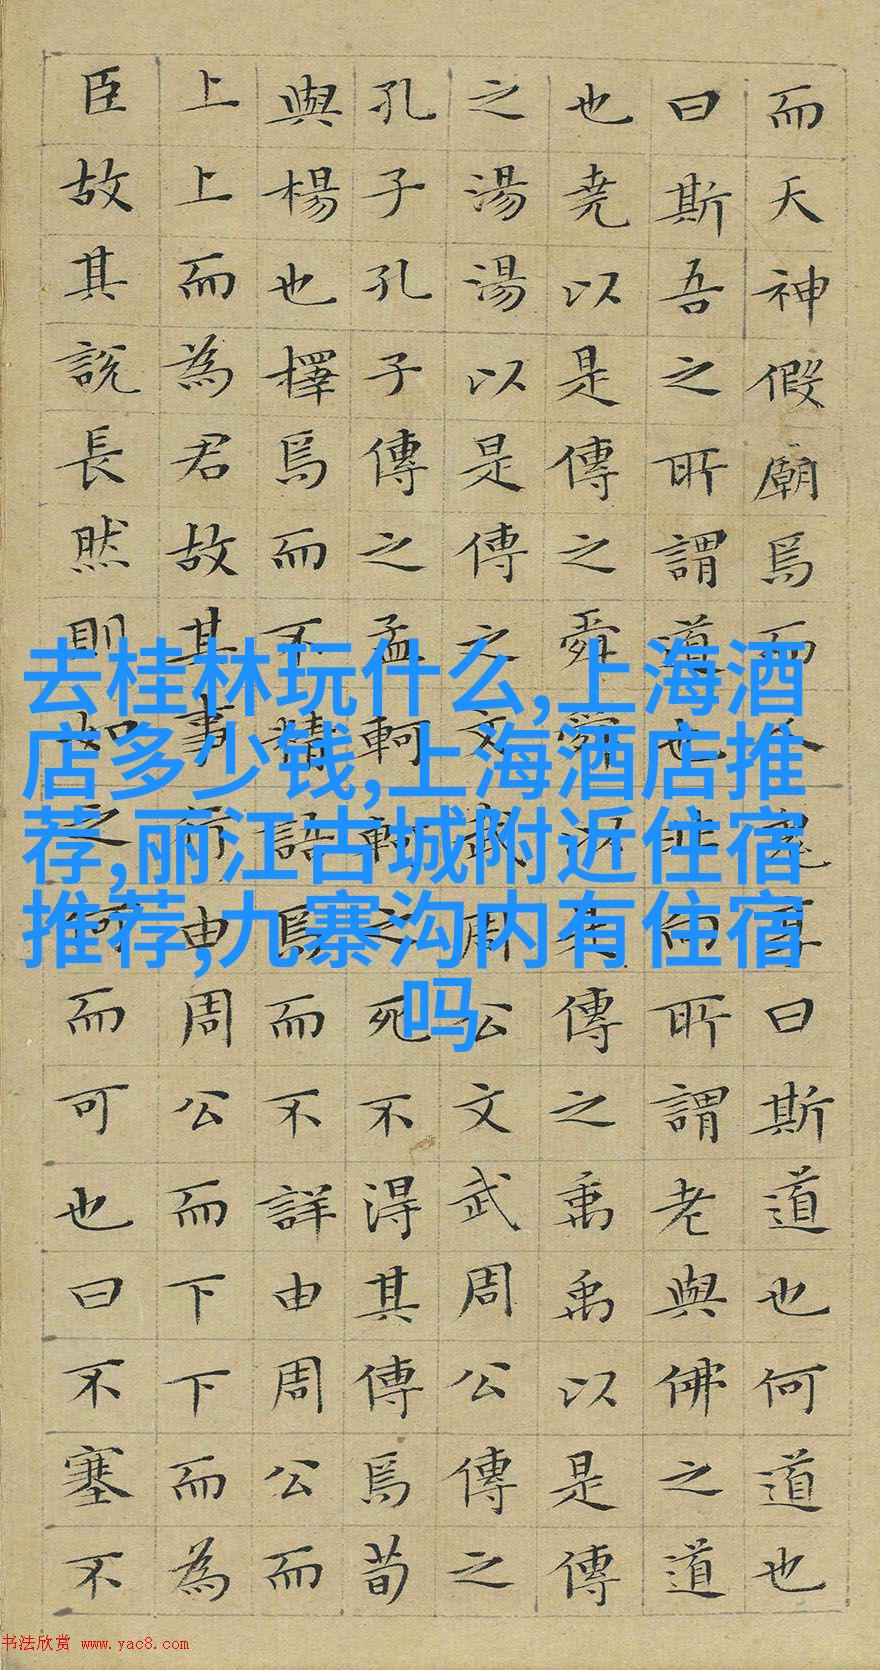 而天神假廟焉而人鬼享曰斯道也何道也
曰斯吾之所謂道也非向所謂老與佛之道
也堯以是傳之舜舜以是傳之禹禹以是傳
之湯湯以是傳之文武周公文武周公傳之
孔子孔子傳之孟軻軻之死不得其傳焉荀
與楊也擇焉而不精語焉而不詳由周公而
上上而為君故其事行由周公而下下而為
臣故其說長然則如之何而可也曰不塞不
去桂林玩什么,上海酒
店多少钱,上海酒店推
荐,丽江古城附近住宿
推荐,九寨沟内有住宿
吗
书法欣赏 www.yac8.com